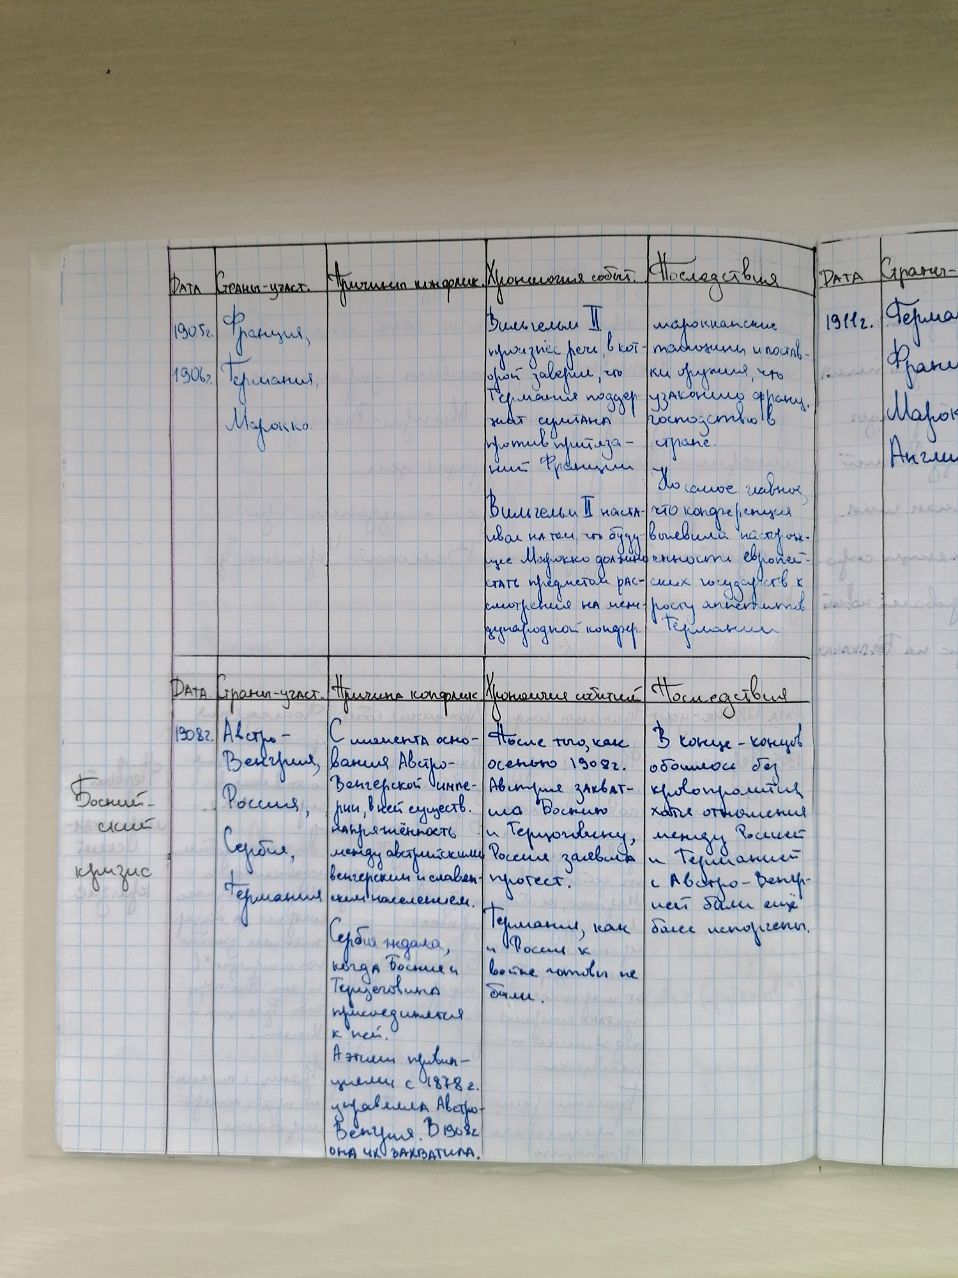 Дата
Страны-участ.
Причины конфлик.
Хронология событ.
Последствия
1905г.
1906г.
Франция,
Германия,
Марокко.
Вильгельм II
произнёс речь, в кот-
орой заверил, что
Германия поддер-
жит султана
против притяза-
ний Франции
Вильгельм II наста-
ивал на том, что буду-
щее Марокко должно
стать предметом рас-
смотрения на меж-
дународной конфер.
марокканские
таможни и постав-
ки оружия, что
узаконило франц.
господство в
стране.
Но самое главное,
что конференция
выявила насторож-
енности европей-
ских государств к
росту аппетитов
Германии
Дата
Страны-участ.
Причина конфлик.
Хронология событий
Последствия
Босний-
ский
кризис
1908г.
Австро-
Венгрия,
Россия,
Сербия,
Германия
С момента осно-
вания Австро-
Венгерской импе-
рии, в ней существ.
напряжённость
между австрийскими
венгерским и славян-
ским населением.
Сербия ждала,
когда Босния и
Герцеговина
присоединятся
к ней.
А этими провин-
циями с 1878г.
управляла Австро-
Венгрия. В 1908г
она их захватила.
После того, как
осенью 1908г.
Австрия захват-
ила Боснию
и Герцоговину,
Россия заявила
протест.
Германия, как
и Россия к
войне готовы не
были.
В конце-концов
обошлось без
кровопролития,
хотя отношения
между Россией
и Германией
с Австро-Венгр-
ией были ещё
более испорчены.
Дата
Страны-
1911г.
Герма
Франц
Марок
Англи